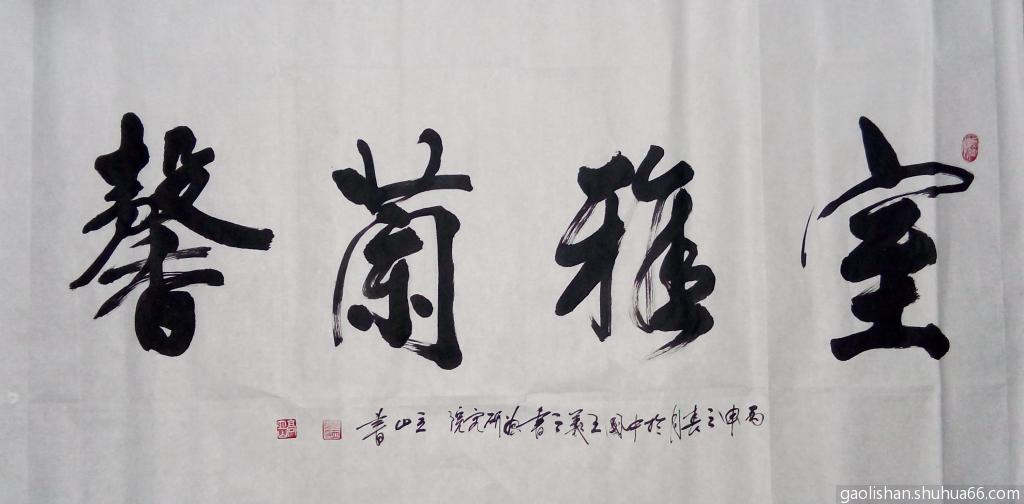 室雅兰馨
丙申之春月於中国王羲之书画研究院 立山书
gaolishan.shuhua66.com